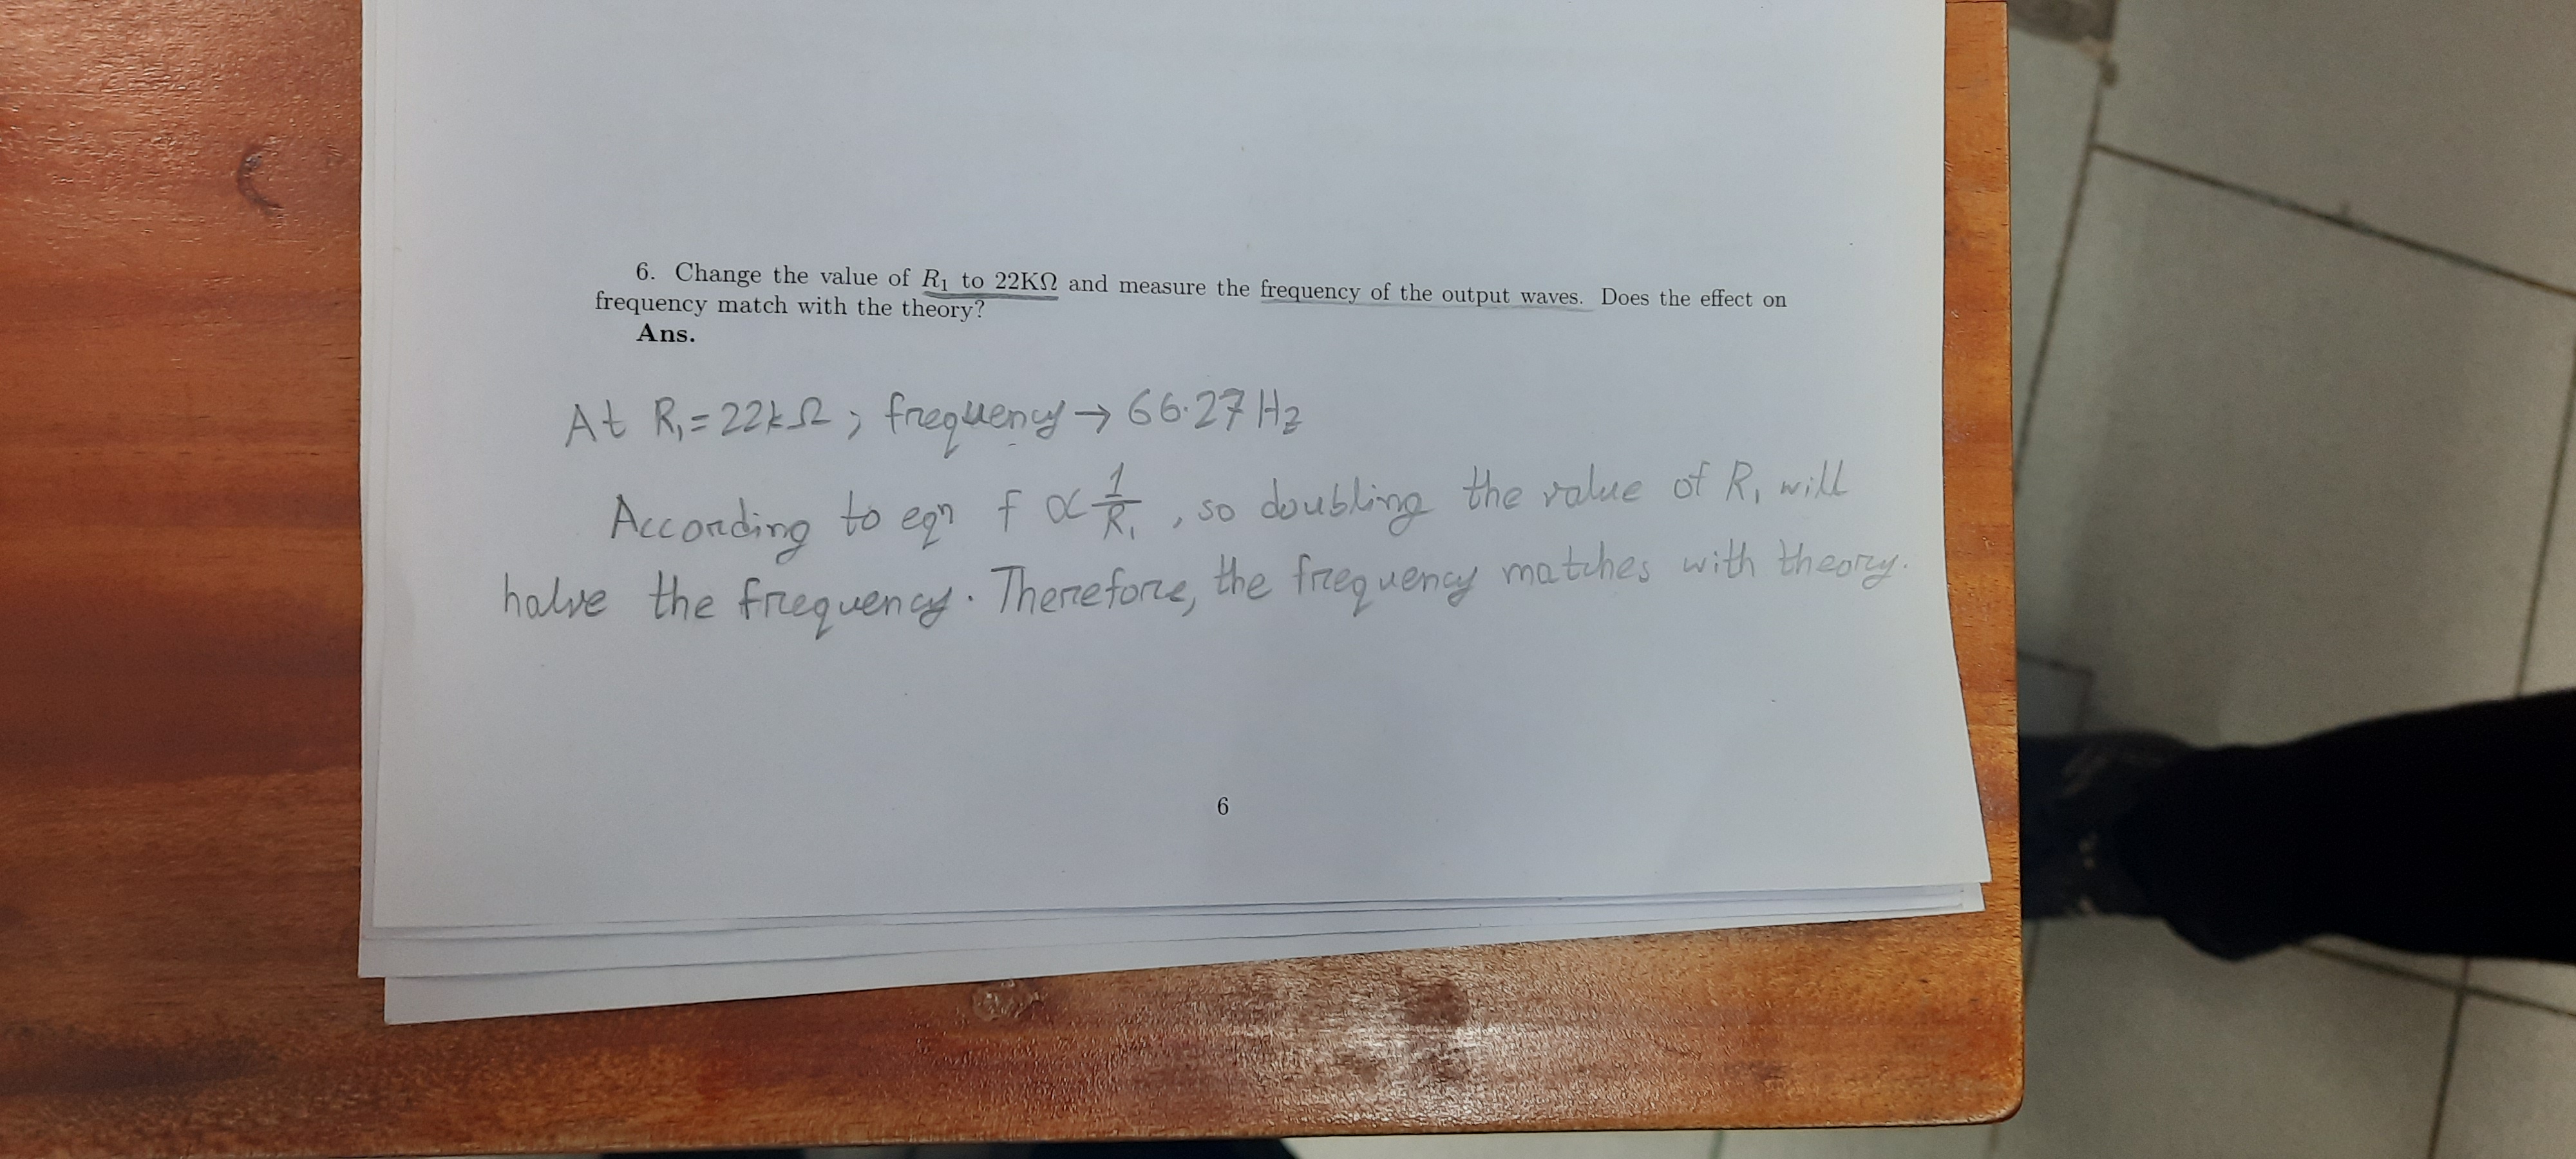 6. Change the value of R₁ to 22KΩ and measure the frequency of the output waves. Does the effect on
frequency match with the theory?
Ans.
At R₁ = 22kΩ, frequency → 66.27 Hz
According to eqⁿ f ∝ 1/R₁, so doubling the value of R₁ will
halve the frequency. Therefore, the frequency matches with theory.
6